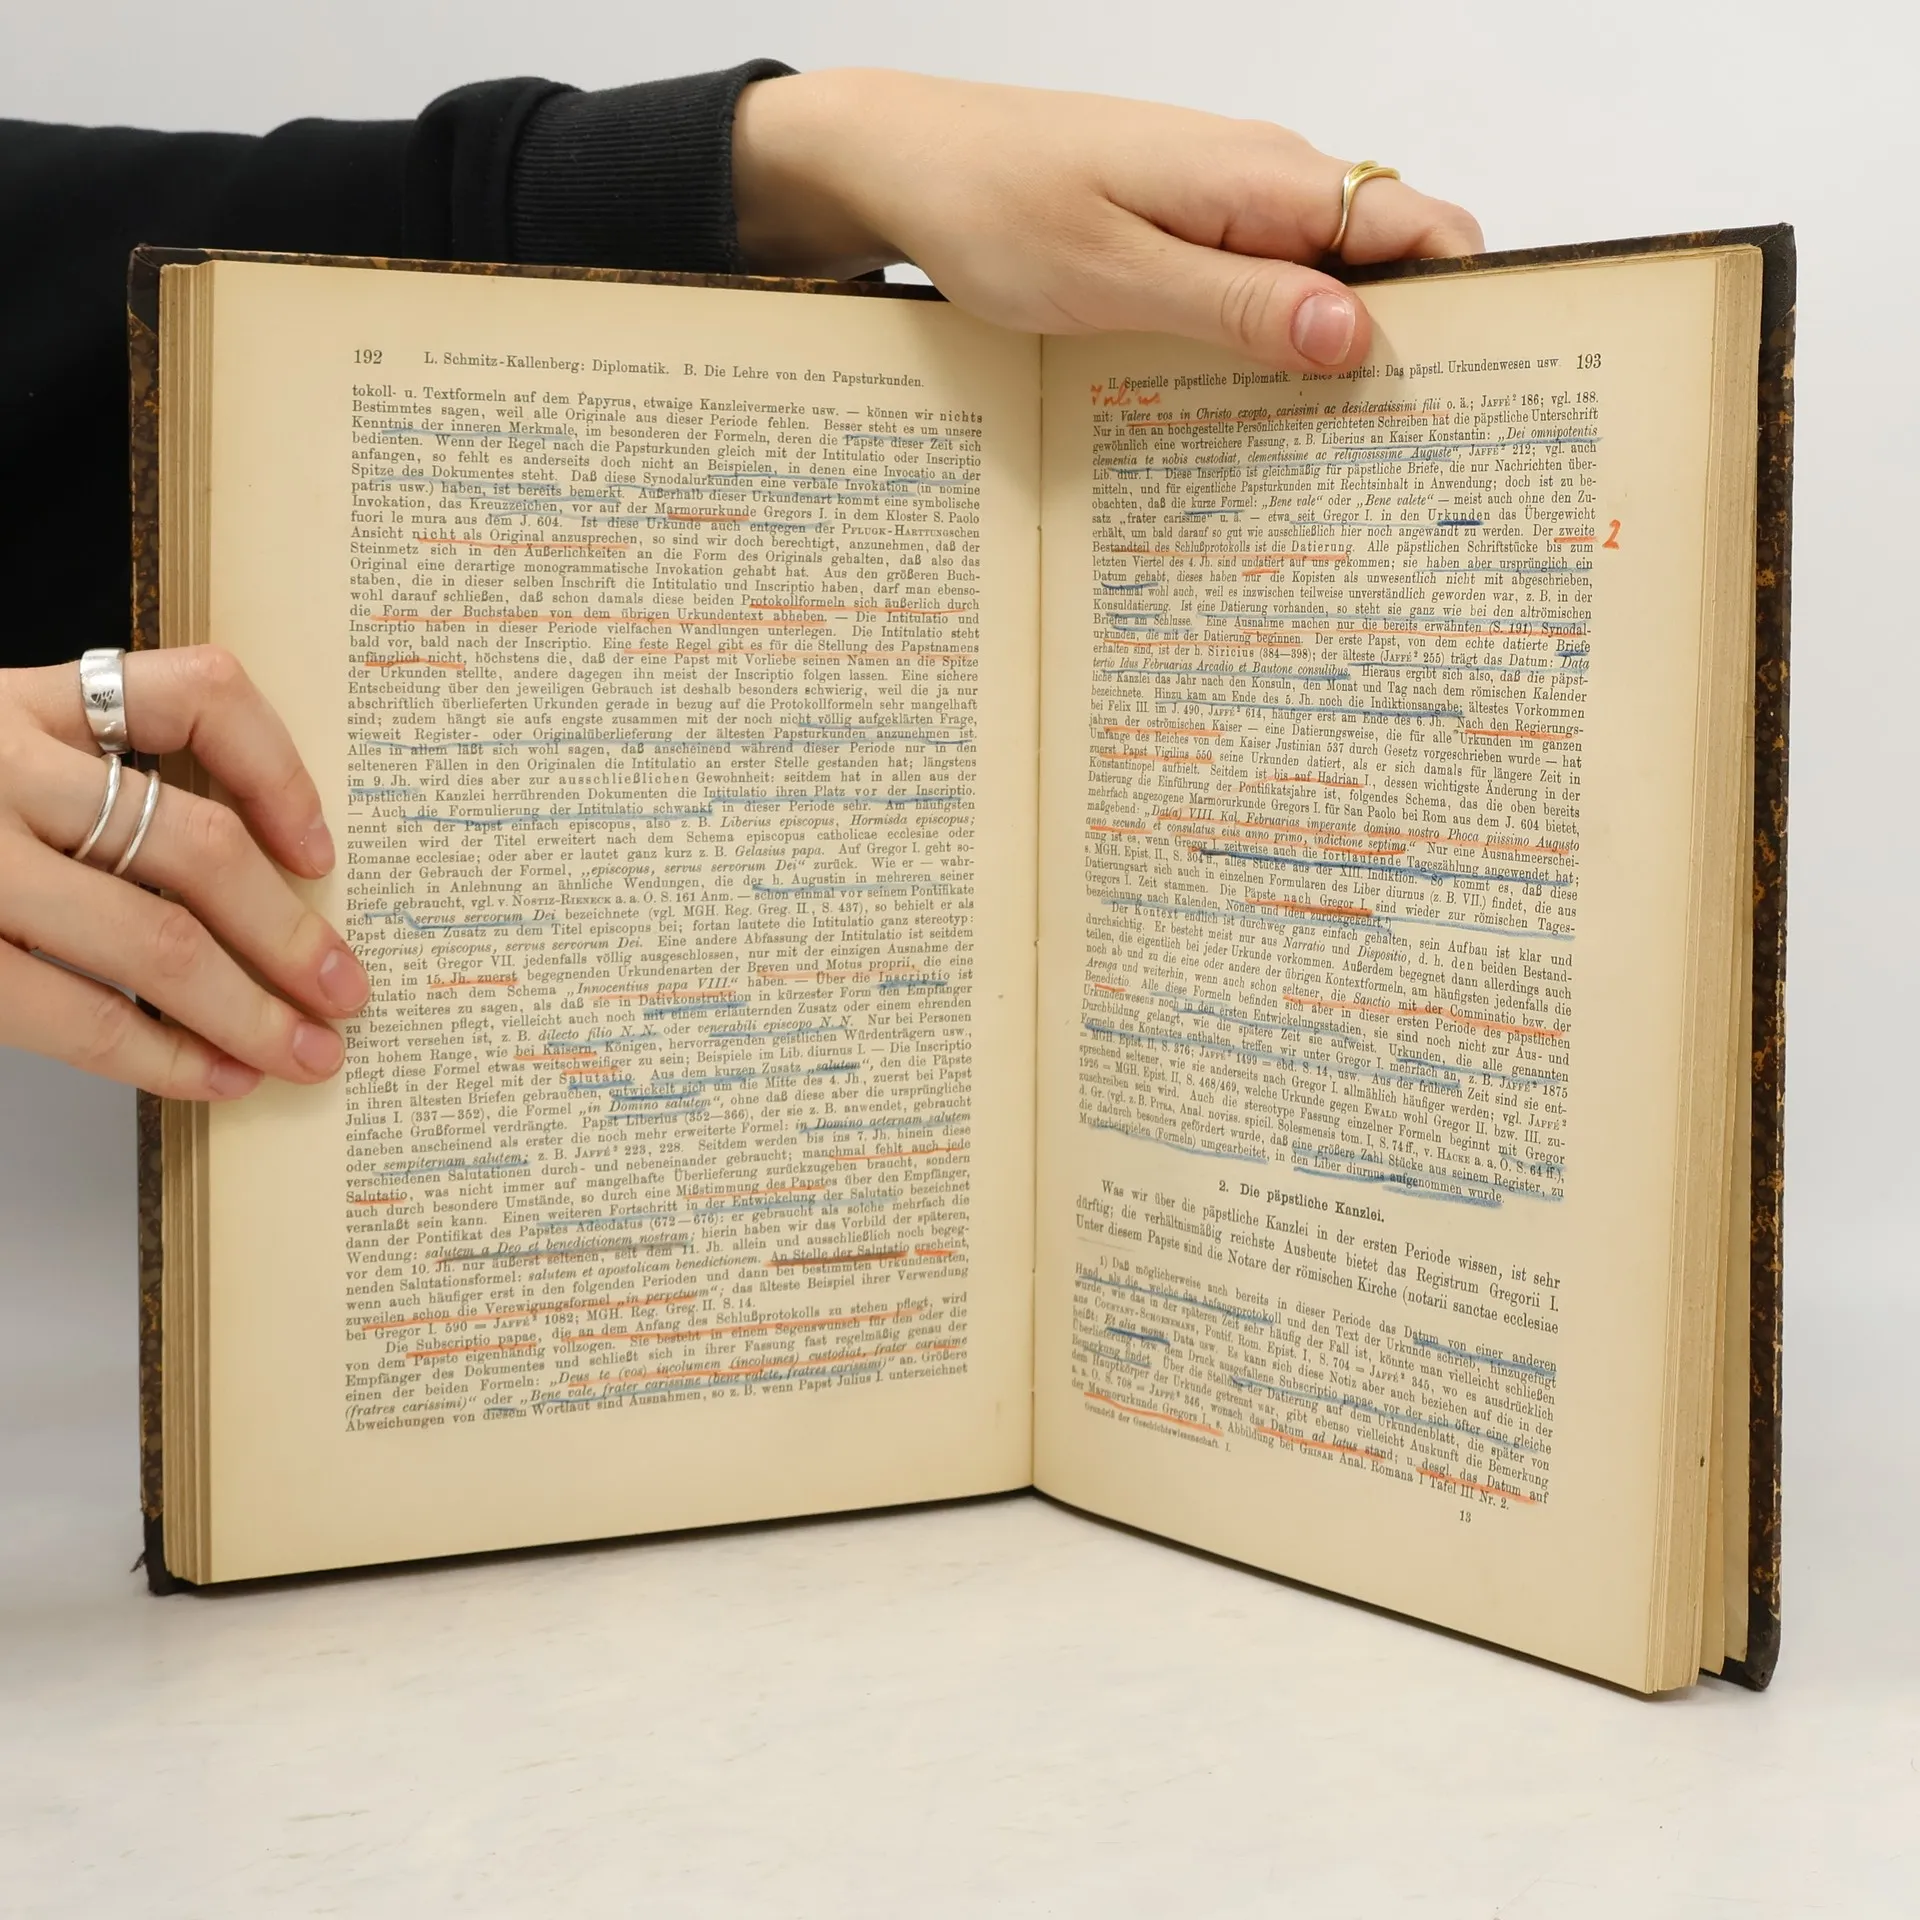 192 L. Schmitz-Kallenberg: Diplomatik. B. Die Lehre von den Papsturkunden.
tokoll- u. Textformeln auf dem Papyrus, etwaige Kanzleivermerke usw. — können wir nichts
Bestimmtes sagen, weil alle Originale aus dieser Periode fehlen. Besser steht es um unsere
Kenntnis der inneren Merkmale, im besonderen der Formeln, deren die Päpste dieser Zeit sich
bedienten. Wenn der Regel nach die Papsturkunden gleich mit der Intitulatio oder Inscriptio
anfangen, so fehlt es anderseits doch nicht an Beispielen, in denen eine Invocatio an der
Spitze des Dokumentes steht. Daß diese Synodalurkunden eine verbale Invokation (in nomine
patris usw.) haben, ist bereits bemerkt. Außerhalb dieser Urkundenart kommt eine symbolische
Invokation, das Kreuzzeichen, vor auf der Marmorurkunde Gregors I. in dem Kloster S. Paolo
fuori le mura aus dem J. 604. Ist diese Urkunde auch entgegen der Pflugk-Harttungschen
Ansicht nicht als Original anzusprechen, so sind wir doch berechtigt, anzunehmen, daß der
Steinmetz sich in den Äußerlichkeiten an die Form des Originals gehalten, daß also das
Original eine derartige monogrammatische Invokation gehabt hat. Aus den größeren Buch-
staben, die in dieser selben Inschrift die Intitulatio und Inscriptio haben, darf man ebenso-
wohl darauf schließen, daß schon damals diese beiden Protokollformeln sich äußerlich durch
die Form der Buchstaben von dem übrigen Urkundentext abheben. — Die Intitulatio und
Inscriptio haben in dieser Periode vielfachen Wandlungen unterlegen. Die Intitulatio steht
bald vor, bald nach der Inscriptio. Eine feste Regel gibt es für die Stellung des Papstnamens
anfänglich nicht, höchstens die, daß der eine Papst mit Vorliebe seinen Namen an die Spitze
der Urkunden stellte, andere dagegen ihn meist der Inscriptio folgen lassen. Eine sichere
Entscheidung über den jeweiligen Gebrauch ist deshalb besonders schwierig, weil die ja nur
abschriftlich überlieferten Urkunden gerade in bezug auf die Protokollformeln sehr mangelhaft
sind; zudem hängt sie aufs engste zusammen mit der noch nicht völlig aufgeklärten Frage,
wieweit Register- oder Originalüberlieferung der ältesten Papsturkunden anzunehmen ist.
Alles in allem läßt sich wohl sagen, daß anscheinend während dieser Periode nur in den
selteneren Fällen in den Originalen die Intitulatio an erster Stelle gestanden hat; längstens
im 9. Jh. wird dies aber zur ausschließlichen Gewohnheit: seitdem hat in allen aus der
päpstlichen Kanzlei herrührenden Dokumenten die Intitulatio ihren Platz vor der Inscriptio.
— Auch die Formulierung der Intitulatio schwankt in dieser Periode sehr. Am häufigsten
nennt sich der Papst einfach episcopus, also z. B. Liberius episcopus, Hormisda episcopus;
zuweilen wird der Titel erweitert nach dem Schema episcopus catholicae ecclesiae oder
Romanae ecclesiae; oder aber er lautet ganz kurz z. B. Gelasius papa. Auf Gregor I. geht so-
dann der Gebrauch der Formel, „episcopus, servus servorum Dei“ zurück. Wie er — wahr-
scheinlich in Anlehnung an ähnliche Wendungen, die der h. Augustin in mehreren seiner
Briefe gebraucht, vgl. v. Nostiz-Rieneck a. a. O. S. 161 Anm. — schon einmal vor seinem Pontifikate
sich als servus servorum Dei bezeichnete (vgl. MGH. Reg. Greg. II., S. 437), so behielt er als
Papst diesen Zusatz zu dem Titel episcopus bei; fortan lautete die Intitulatio ganz stereotyp:
(Gregorius) episcopus, servus servorum Dei. Eine andere Abfassung der Intitulatio ist seitdem
lten, seit Gregor VII. jedenfalls völlig ausgeschlossen, nur mit der einzigen Ausnahme der
den im 15. Jh. zuerst begegnenden Urkundenarten der Breven und Motus proprii, die eine
tulatio nach dem Schema „Innocentius papa VIII.“ haben. — Über die Inscriptio ist
chts weiteres zu sagen, als daß sie in Dativkonstruktion in kürzester Form den Empfänger
zu bezeichnen pflegt, vielleicht auch noch mit einem erläuternden Zusatz oder einem ehrenden
Beiwort versehen ist, z. B. dilecto filio N. N. oder venerabili episcopo N. N. Nur bei Personen
von hohem Range, wie bei Kaisern, Königen, hervorragenden geistlichen Würdenträgern usw.,
pflegt diese Formel etwas weitschweifiger zu sein; Beispiele im Lib. diurnus I. — Die Inscriptio
schließt in der Regel mit der Salutatio. Aus dem kurzen Zusatz „salutem“, den die Päpste
in ihren ältesten Briefen gebrauchen, entwickelt sich um die Mitte des 4. Jh., zuerst bei Papst
Julius I. (337—352), die Formel „in Domino salutem“, ohne daß diese aber die ursprüngliche
einfache Grußformel verdrängte. Papst Liberius (352—366), der sie z. B. anwendet, gebraucht
daneben anscheinend als erster die noch mehr erweiterte Formel: in Domino aeternam salutem
oder sempiternam salutem; z. B. Jaffé² 223, 228. Seitdem werden bis ins 7. Jh. hinein diese
verschiedenen Salutationen durch- und nebeneinander gebraucht; manchmal fehlt auch jede
Salutatio, was nicht immer auf mangelhafte Überlieferung zurückzugehen braucht, sondern
auch durch besondere Umstände, so durch eine Mißstimmung des Papstes über den Empfänger,
veranlaßt sein kann. Einen weiteren Fortschritt in der Entwickelung der Salutatio bezeichnet
dann der Pontifikat des Papstes Adeodatus (672—676): er gebraucht als solche mehrfach die
Wendung: salutem a Deo et benedictionem nostram; hierin haben wir das Vorbild der späteren,
vor dem 10. Jh. nur äußerst seltenen, seit dem 11. Jh. allein und ausschließlich noch begeg-
nenden Salutationsformel: salutem et apostolicam benedictionem. An Stelle der Salutatio erscheint,
wenn auch häufiger erst in den folgenden Perioden und dann bei bestimmten Urkundenarten,
zuweilen schon die Verewigungsformel „in perpetuum“; das älteste Beispiel ihrer Verwendung
bei Gregor I. 590 = Jaffé² 1082; MGH. Reg. Greg. II. S. 14.
Die Subscriptio papae, die an dem Anfang des Schlußprotokolls zu stehen pflegt, wird
von dem Papste eigenhändig vollzogen. Sie besteht in einem Segenswunsch für den oder die
Empfänger des Dokumentes und schließt sich in ihrer Fassung fast regelmäßig genau der
einen der beiden Formeln: „Deus te (vos) incolumem (incolumes) custodiat, frater carissime
(fratres carissimi)“ oder „Bene vale, frater carissime (bene valete, fratres carissimi)“ an. Größere
Abweichungen von diesem Wortlaut sind Ausnahmen, so z. B. wenn Papst Julius I. unterzeichnet
II. Spezielle päpstliche Diplomatik. Erstes Kapitel: Das päpstl. Urkundenwesen usw. 193
Julius
mit: Valere vos in Christo exopto, carissimi ac desideratissimi filii o. ä.; Jaffé² 186; vgl. 188.
Nur in den an hochgestellte Persönlichkeiten gerichteten Schreiben hat die päpstliche Unterschrift
gewöhnlich eine wortreichere Fassung, z. B. Liberius an Kaiser Konstantin: „Dei omnipotentis
clementia te nobis custodiat, clementissime ac religiosissime Auguste“, Jaffé² 212; vgl. auch
Lib. diur. I. Diese Inscriptio ist gleichmäßig für päpstliche Briefe, die nur Nachrichten über-
mitteln, und für eigentliche Papsturkunden mit Rechtsinhalt in Anwendung; doch ist zu be-
obachten, daß die kurze Formel: „Bene vale“ oder „Bene valete“ — meist auch ohne den Zu-
satz „frater carissime“ u. ä. — etwa seit Gregor I. in den Urkunden das Übergewicht
erhält, um bald darauf so gut wie ausschließlich hier noch angewandt zu werden. Der zweite 2
Bestandteil des Schlußprotokolls ist die Datierung. Alle päpstlichen Schriftstücke bis zum
letzten Viertel des 4. Jh. sind undatiert auf uns gekommen; sie haben aber ursprünglich ein
Datum gehabt, dieses haben nur die Kopisten als unwesentlich nicht mit abgeschrieben,
manchmal wohl auch, weil es inzwischen teilweise unverständlich geworden war, z. B. in der
Konsuldatierung. Ist eine Datierung vorhanden, so steht sie ganz wie bei den altrömischen
Briefen am Schlusse. Eine Ausnahme machen nur die bereits erwähnten (S. 191) Synodal-
urkunden, die mit der Datierung beginnen. Der erste Papst, von dem echte datierte Briefe
erhalten sind, ist der h. Siricius (384—398); der älteste (Jaffé² 255) trägt das Datum: Data
tertio Idus Februarias Arcadio et Bautone consulibus. Hieraus ergibt sich also, daß die päpst-
liche Kanzlei das Jahr nach den Konsuln, den Monat und Tag nach dem römischen Kalender
bezeichnete. Hinzu kam am Ende des 5. Jh. noch die Indiktionsangabe; ältestes Vorkommen
bei Felix III. im J. 490, Jaffé² 614, häufiger erst am Ende des 6. Jh. Nach den Regierungs-
jahren der oströmischen Kaiser — eine Datierungsweise, die für alle Urkunden im ganzen
Umfange des Reiches von dem Kaiser Justinian 537 durch Gesetz vorgeschrieben wurde — hat
zuerst Papst Vigilius 550 seine Urkunden datiert, als er sich damals für längere Zeit in
Konstantinopel aufhielt. Seitdem ist bis auf Hadrian I., dessen wichtigste Änderung in der
Datierung die Einführung der Pontifikatsjahre ist, folgendes Schema, das die oben bereits
mehrfach angezogene Marmorurkunde Gregors I. für San Paolo bei Rom aus dem J. 604 bietet,
maßgebend: „Dat(a) VIII. Kal. Februarias imperante domino nostro Phoca piissimo Augusto
anno secundo et consulatus eius anno primo, indictione septima.“ Nur eine Ausnahmeerschei-
nung ist es, wenn Gregor I. zeitweise auch die fortlaufende Tageszählung angewendet hat;
s. MGH. Epist. II., S. 304 ff., alles Stücke aus der XIII. Indiktion. So kommt es, daß diese
Datierungsart sich auch in einzelnen Formularen des Liber diurnus (z. B. VII.) findet, die aus
Gregors I. Zeit stammen. Die Päpste nach Gregor I. sind wieder zur römischen Tages-
bezeichnung nach Kalenden, Nonen und Iden zurückgekehrt.¹)
Der Kontext endlich ist durchweg ganz einfach gehalten, sein Aufbau ist klar und
durchsichtig. Er besteht meist nur aus Narratio und Dispositio, d. h. den beiden Bestand-
teilen, die eigentlich bei jeder Urkunde vorkommen. Außerdem begegnet dann allerdings auch
noch ab und zu die eine oder andere der übrigen Kontextformeln, am häufigsten jedenfalls die
Arenga und weiterhin, wenn auch schon seltener, die Sanctio mit der Comminatio bzw. der
Benedictio. Alle diese Formeln befinden sich aber in dieser ersten Periode des päpstlichen
Urkundenwesens noch in den ersten Entwickelungsstadien, sie sind noch nicht zur Aus- und
Durchbildung gelangt, wie die spätere Zeit sie aufweist. Urkunden, die alle genannten
Formeln des Kontextes enthalten, treffen wir unter Gregor I. mehrfach an, z. B. Jaffé² 1875
= MGH. Epist. II, S. 376; Jaffé² 1499 = ebd. S. 14, usw. Aus der früheren Zeit sind sie ent-
sprechend seltener, wie sie anderseits nach Gregor I. allmählich häufiger werden; vgl. Jaffé²
1926 = MGH. Epist. II, S. 468/469, welche Urkunde gegen Ewald wohl Gregor II. bzw. III. zu-
zuschreiben sein wird. Auch die stereotype Fassung einzelner Formeln beginnt mit Gregor
d. Gr. (vgl. z. B. Pitra, Anal. noviss. spicil. Solesmensis tom. I, S. 74 ff., v. Hacke a. a. O. S. 64 ff.),
die dadurch besonders gefördert wurde, daß eine größere Zahl Stücke aus seinem Register, zu
Musterbeispielen (Formeln) umgearbeitet, in den Liber diurnus aufgenommen wurde.
2. Die päpstliche Kanzlei.
Was wir über die päpstliche Kanzlei in der ersten Periode wissen, ist sehr
dürftig; die verhältnismäßig reichste Ausbeute bietet das Registrum Gregorii I.
Unter diesem Papste sind die Notare der römischen Kirche (notarii sanctae ecclesiae
1) Daß möglicherweise auch bereits in dieser Periode das Datum von einer anderen
Hand, als die, welche das Anfangsprotokoll und den Text der Urkunde schrieb, hinzugefügt
wurde, wie das in der späteren Zeit sehr häufig der Fall ist, könnte man vielleicht schließen
aus Coustant-Schoenemann, Pontif. Rom. Epist. I, S. 704 = Jaffé² 345, wo es ausdrücklich
heißt: Et alia manu: Data usw. Es kann sich diese Notiz aber auch beziehen auf die in der
Überlieferung bzw. dem Druck ausgefallene Subscriptio papae, vor der sich öfter eine gleiche
Bemerkung findet. Über die Stellung der Datierung auf dem Urkundenblatt, die später von
dem Hauptkörper der Urkunde getrennt war, gibt ebenso vielleicht Auskunft die Bemerkung
a. a. O. S. 708 = Jaffé² 346, wonach das Datum ad latus stand; u. desgl. das Datum auf
der Marmorurkunde Gregors I., s. Abbildung bei Grisar Anal. Romana I Tafel III Nr. 2.
Grundriß der Geschichtswissenschaft. I. 13